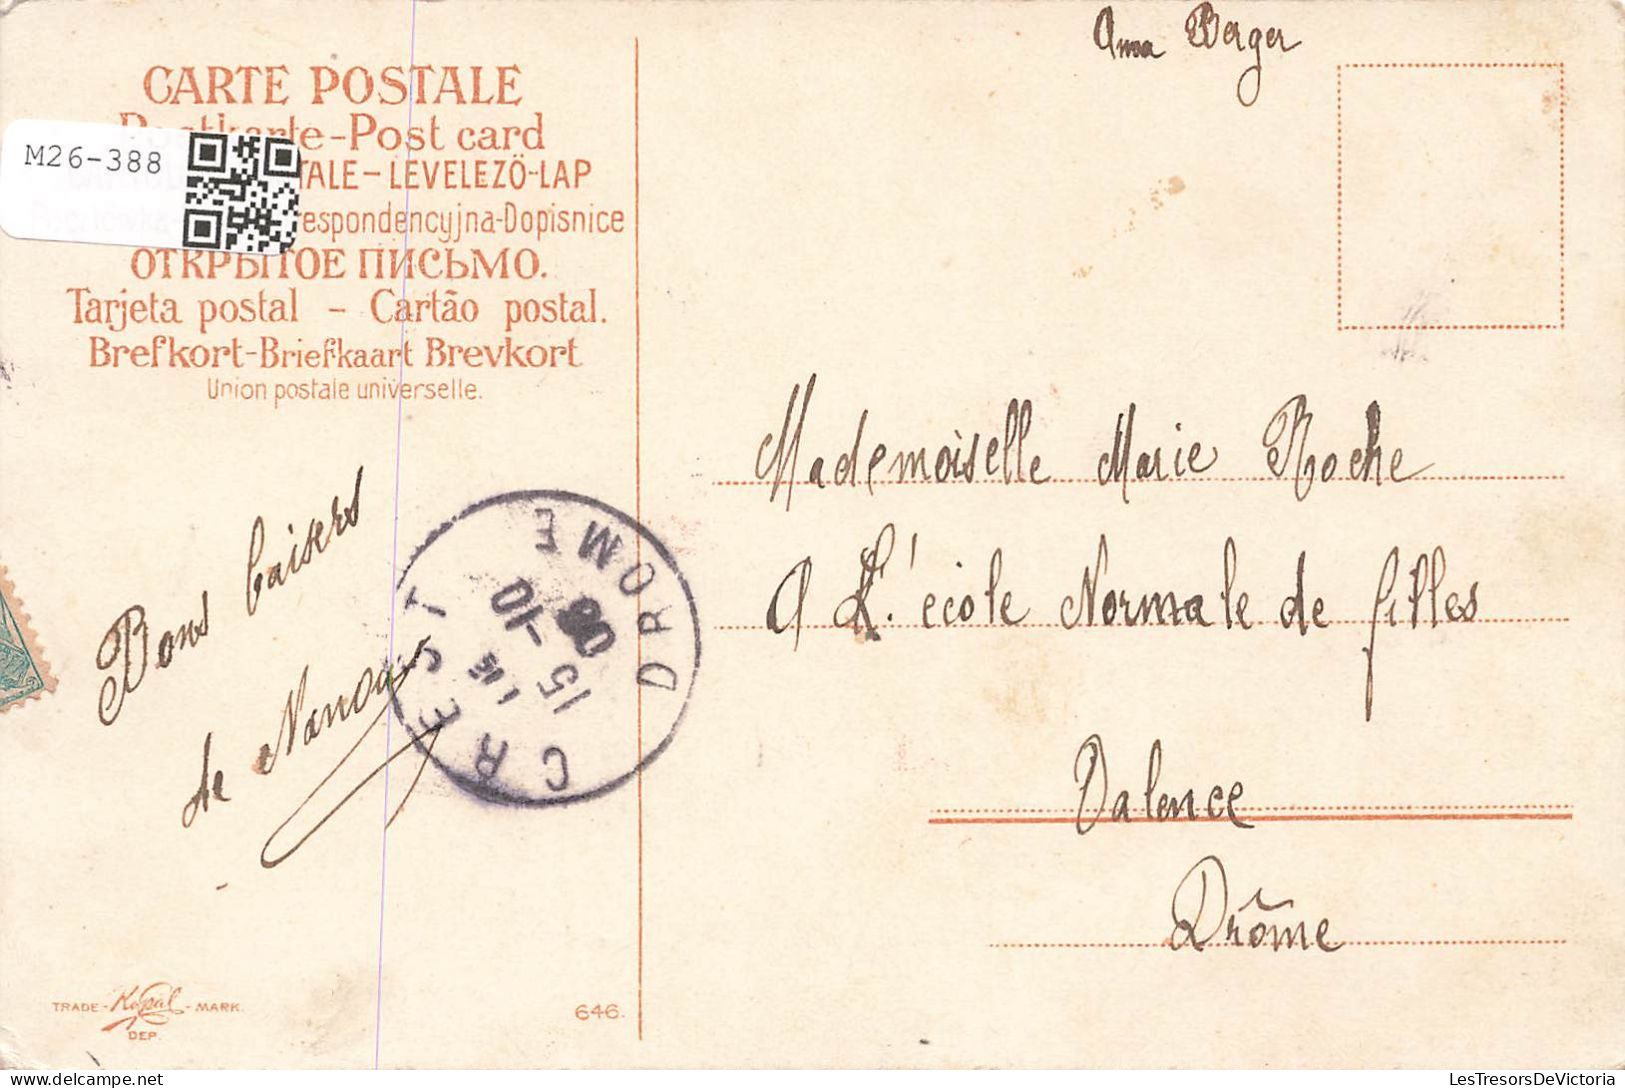 Anna Berger
CARTE POSTALE
Postkarte-Post card
M26-388
TALE-LEVELEZÖ-LAP
respondencyjna-Dopisnice
ОТКРЫТОЕ ПИСЬМО.
Tarjeta postal - Cartão postal.
Brefkort-Briefkaart Brevkort
Union postale universelle.
Mademoiselle Marie Roche
A L'école Normale de filles
Valence
Drôme
Bons baisers
de Nanou
CREST
DROME
15 -10
08
TRADE - Kopal - MARK.
DEP.
646.
LesTresorsDeVictoria